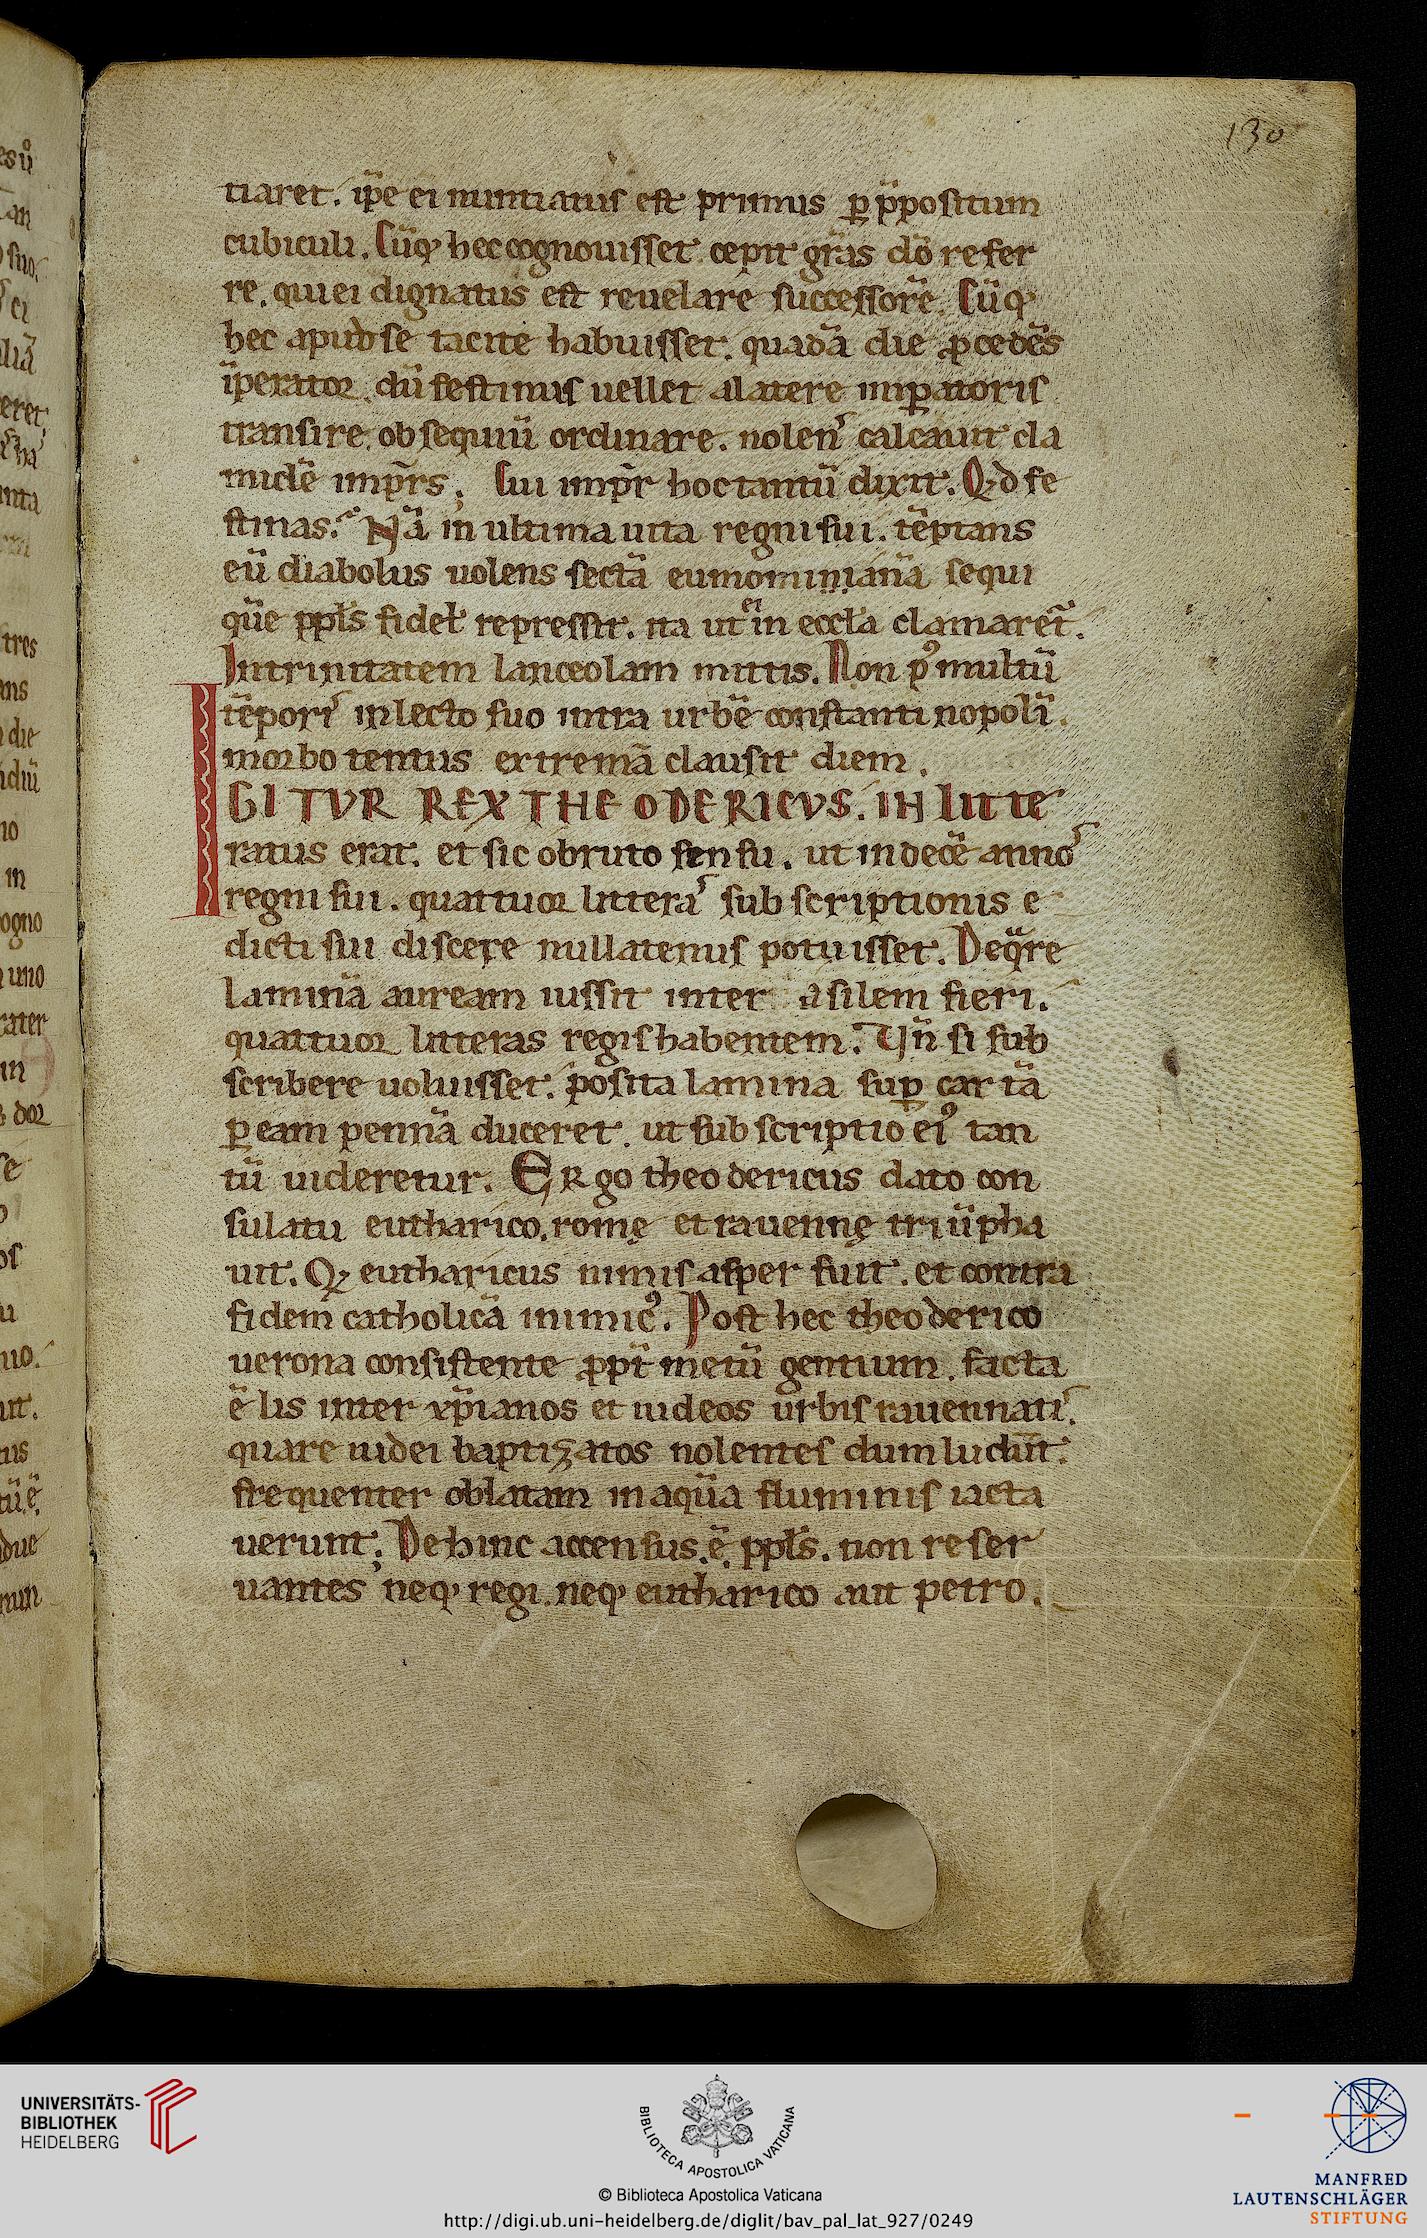 130
tiaret. ip̄e ei nuntiatus est primus ꝑ p̄positum
cubiculi. Cūq; hec cognouisset cepit gr̄as dō refer
re. qui ei dignatus est reuelare successorē. Cūq;
hec apud se tacite habuisset. quadā die ꝓcedēs
īperator. dū festinus uellet a latere imꝑatoris
transire. obsequiū ordinare. nolens calcauit cla
midē imp̄rs. Cui imp̄r hoc tantū dixit. Qd fe
stinas. Nā in ultima uita regni sui. tēptans
eū diabolus uolens sectā eunominianā sequi
quē ppl̄s fidel̄ repressit. ita ut ei in eccl̄a clamaret̄.
In trinitatem lanceolam mittis. Non pꝰ multū
tēporis in lecto suo intra urbē constantinopolī.
morbo tentus extremā clausit diem.
IGITVR REX THEODERICVS. INlitte
ratus erat. et sic obruto sensu. ut in decē annos
regni sui. quattuor litteras subscriptionis e
dicti sui discere nullatenus potuisset. Deq̄re
laminā auream iussit inter asilem fieri.
quattuor litteras regis habentem. Vn̄ si sub
scribere uoluisset. posita lamina suꝑ cartā
ꝑ eam pennā duceret. ut subscriptio eiꝰ tan
tū uideretur. Ergo theodericus dato con
sulatu eutharico. romę et rauennę triūpha
uit. Q; eutharicus nimis asper fuit. et contra
fidem catholicā inimicꝰ. Post hec theoderico
uerona consistente ꝓpt̄ metū gentium. facta
ē lis inter xp̄ianos et iudeos urbis rauennatis.
quare iudei baptizatos nolentes dum ludūt.
frequenter oblatam in aquā fluminis iacta
uerunt. Dehinc accensus. ē. ppl̄s. non reser
uantes neq; regi. neq; eutharico aut petro.
UNIVERSITÄTS-
BIBLIOTHEK
HEIDELBERG
BIBLIOTECA APOSTOLICA VATICANA
© Biblioteca Apostolica Vaticana
http://digi.ub.uni-heidelberg.de/diglit/bav_pal_lat_927/0249
MANFRED
LAUTENSCHLÄGER
STIFTUNG